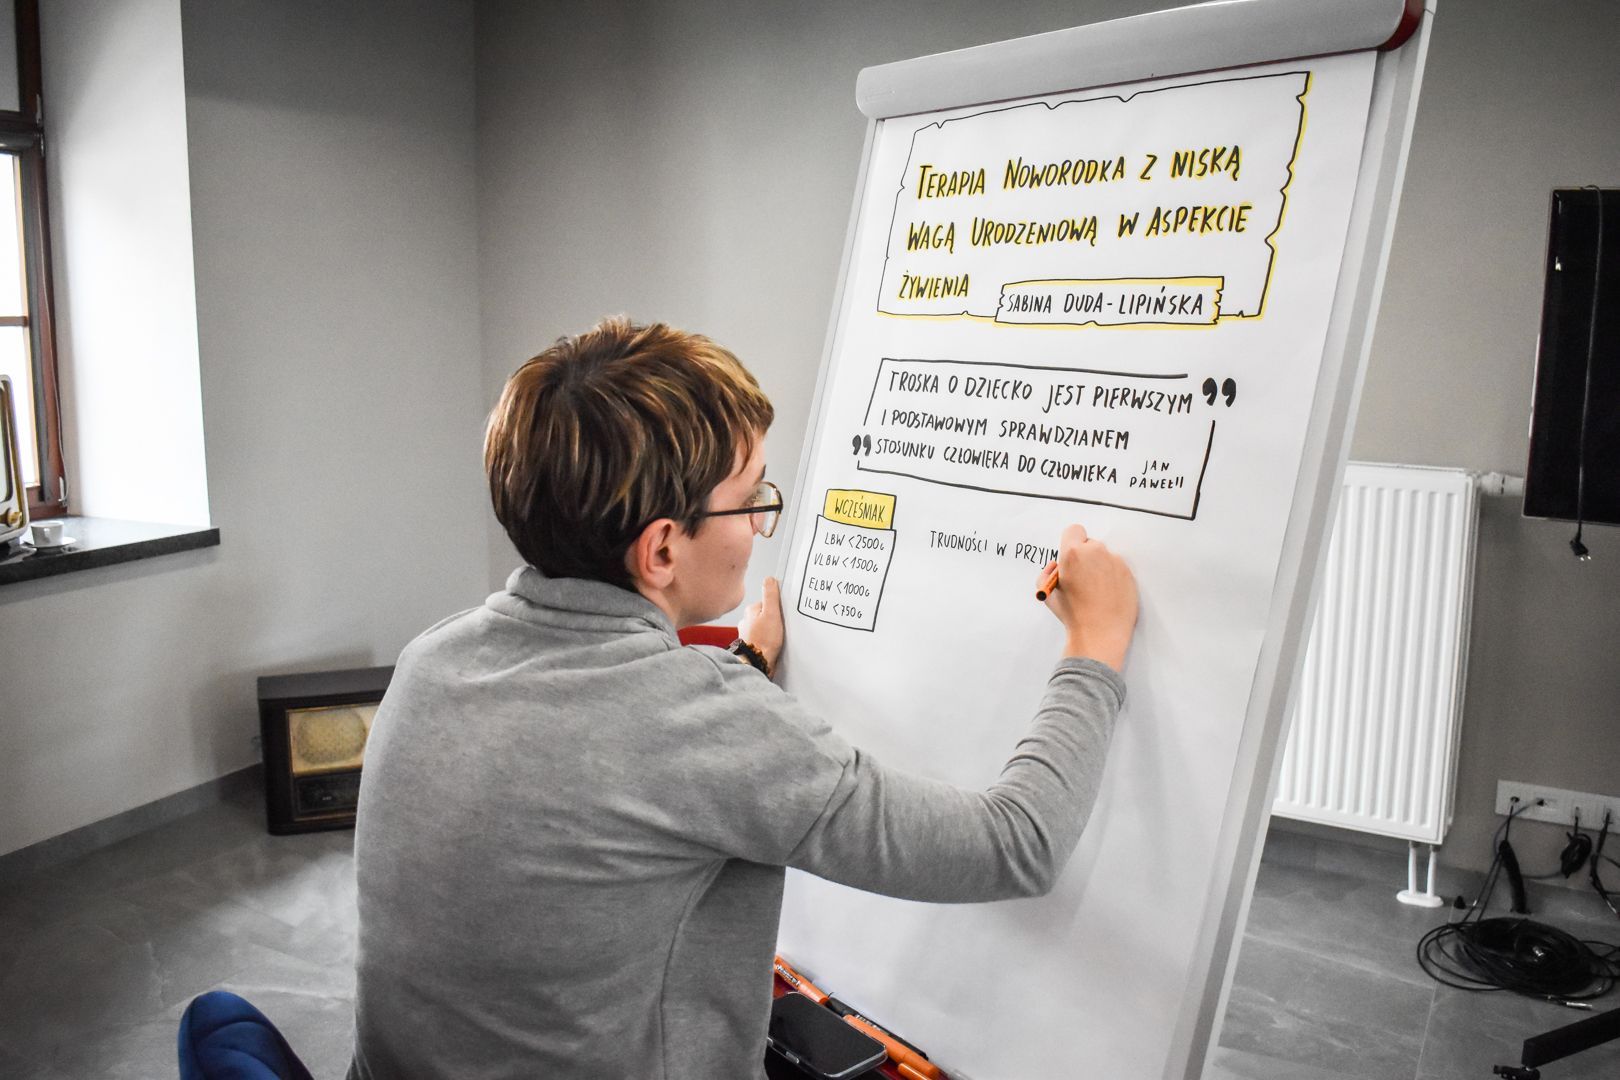 TERAPIA NOWORODKA Z NISKĄ
WAGĄ URODZENIOWĄ W ASPEKCIE
ŻYWIENIA
SABINA DUDA-LIPIŃSKA
TROSKA O DZIECKO JEST PIERWSZYM
I PODSTAWOWYM SPRAWDZIANEM
STOSUNKU CZŁOWIEKA DO CZŁOWIEKA
JAN
PAWEŁ II
WCZEŚNIAK
LBW <2500G
VLBW <1500G
ELBW <1000G
ILBW <750G
TRUDNOŚCI W PRZYJM